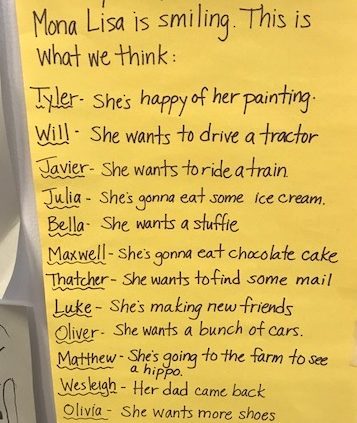 Mona Lisa is smiling. This is
what we think:
Tyler- She's happy of her painting.
Will - She wants to drive a tractor
Javier- She wants to ride a train.
Julia - She's gonna eat some ice cream.
Bella- She wants a stuffie
Maxwell- She's gonna eat chocolate cake
Thatcher- She wants to find some mail
Luke - She's making new friends
Oliver- She wants a bunch of cars.
Matthew - She's going to the farm to see
a hippo.
Wesleigh - Her dad came back
Olivia - She wants more shoes